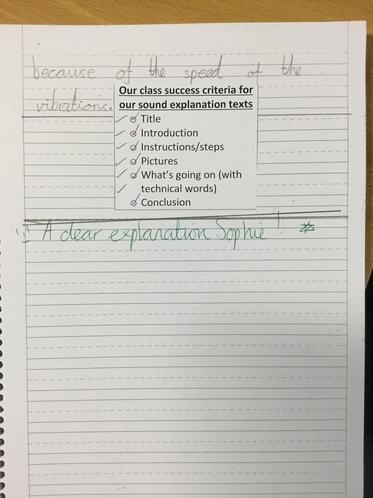 because of the speed of the
vibrations.
Our class success criteria for
our sound explanation texts
Title
Introduction
Instructions/steps
Pictures
What's going on (with
technical words)
Conclusion
A clear explanation Sophie!